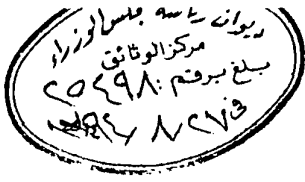 ديوان رياسة مجلس الوزراء
مركز الوثائق
مبلغ برقم : ٢٥٤٩٨
في ٨/٢٧